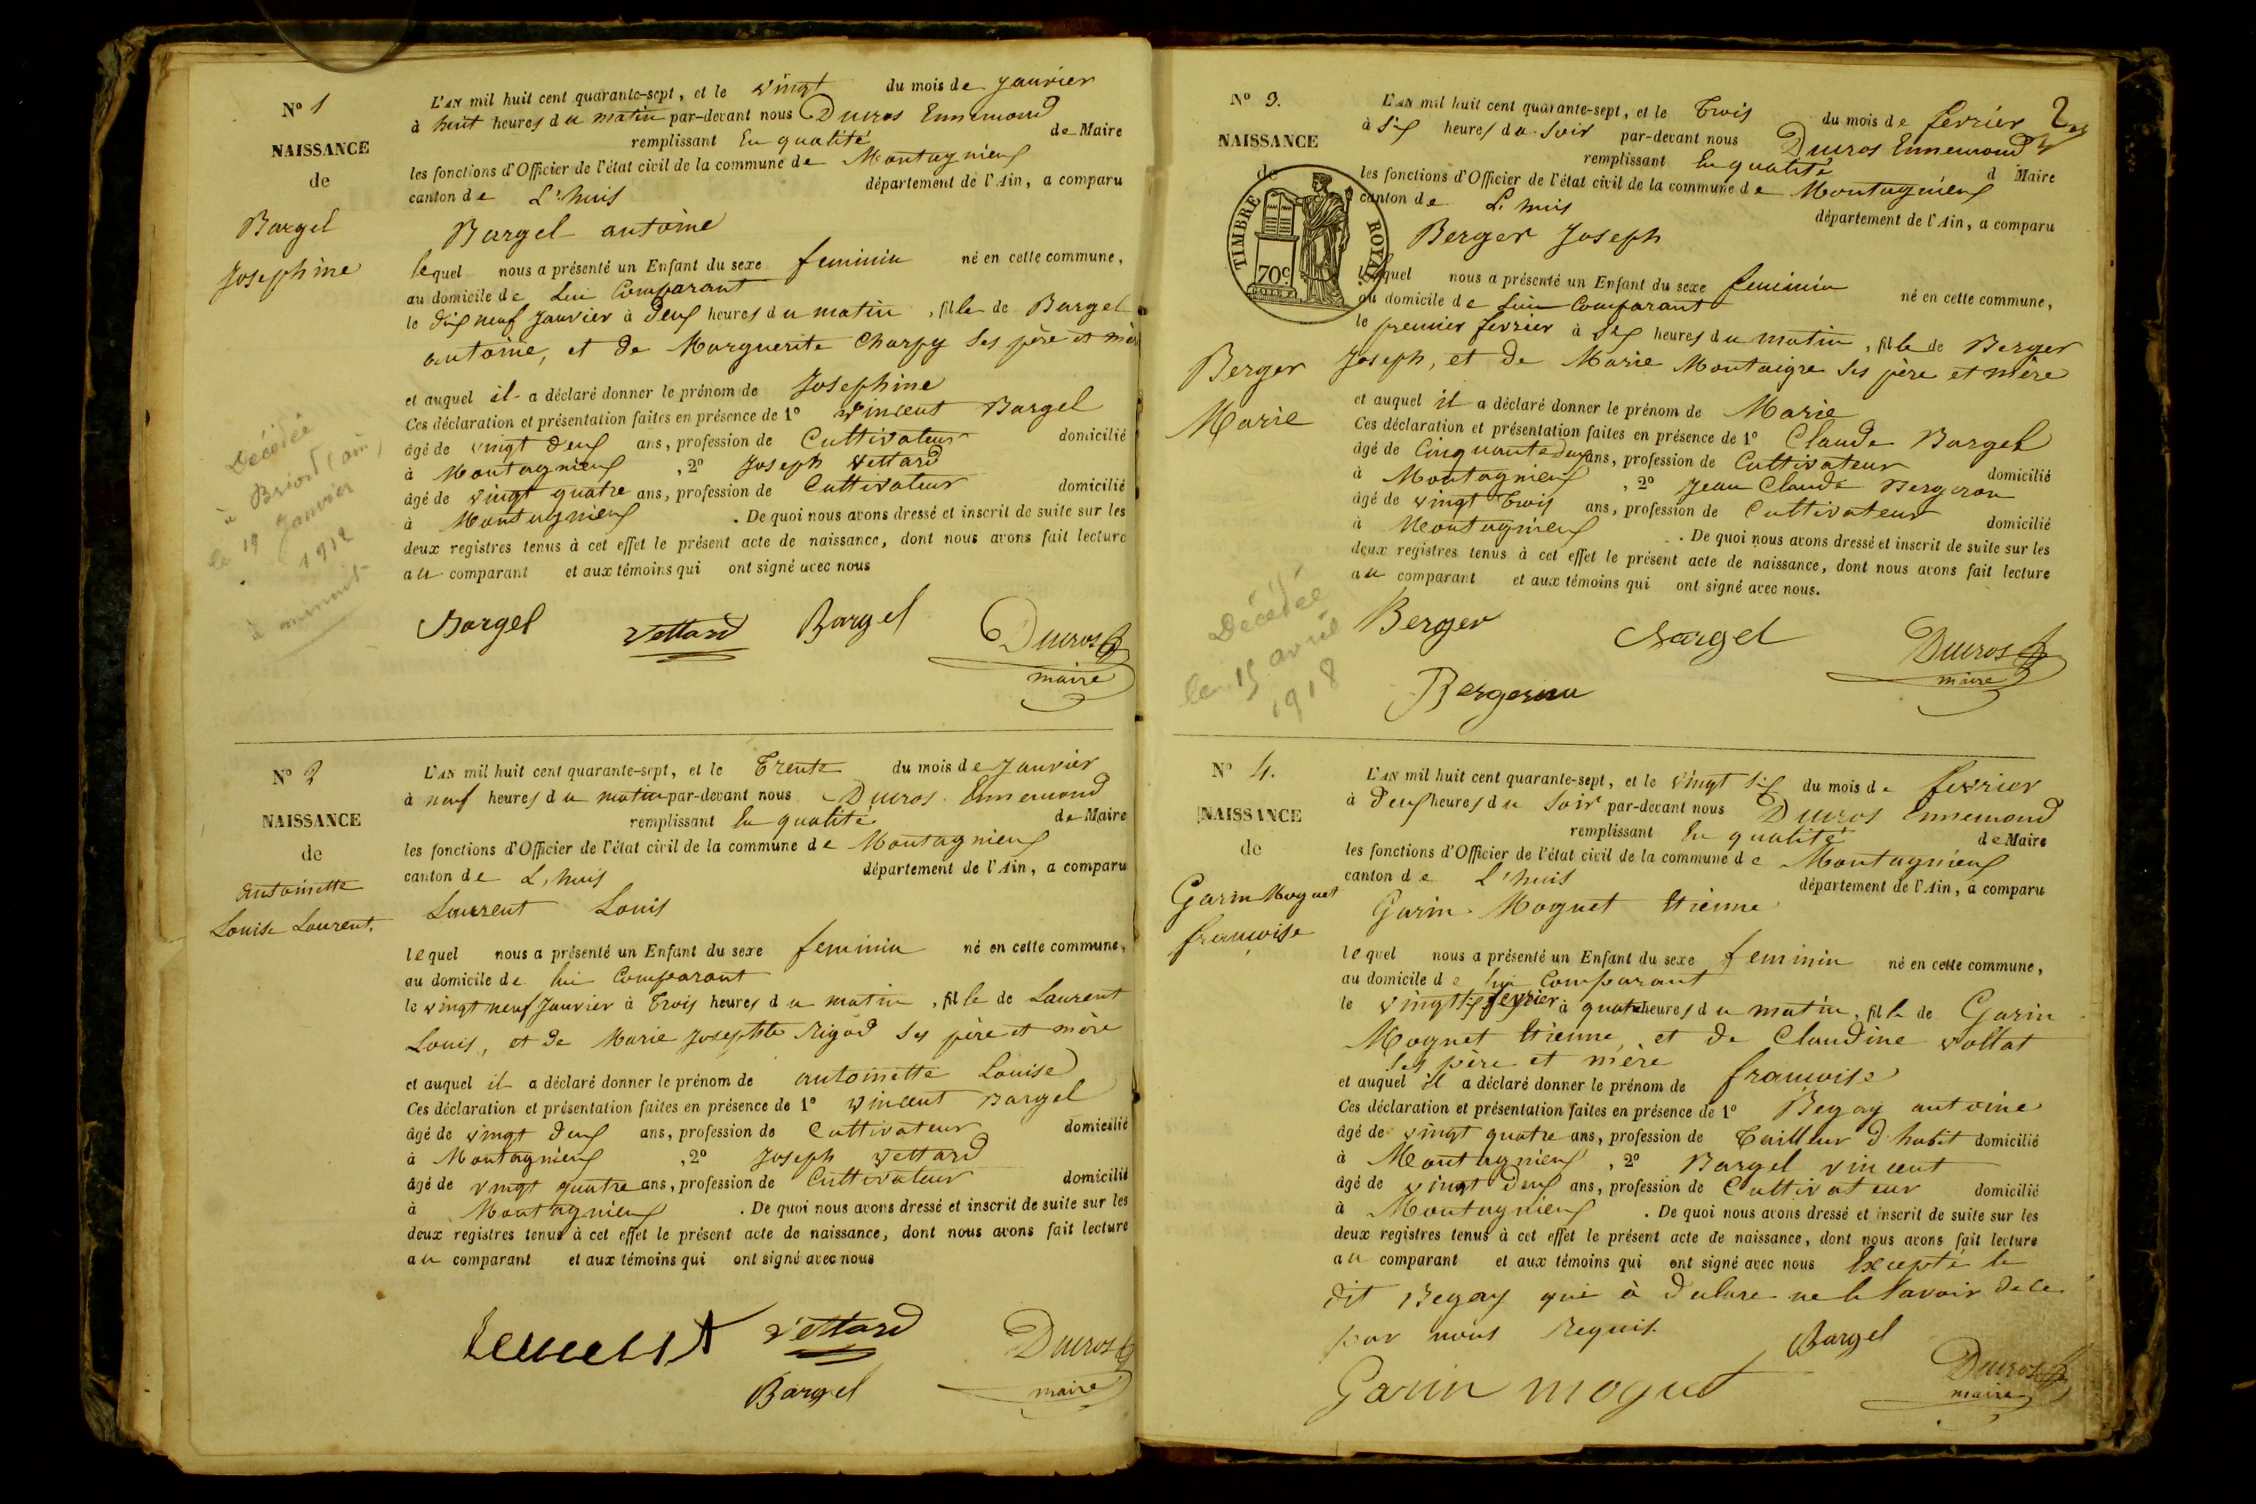 N° 1
NAISSANCE
de
Bargel
Josephine
L'AN mil huit cent quarante-sept, et le vingt du mois de Janvier
à huit heures du matin par-devant nous Ducros Ennemond
remplissant En qualité de Maire
les fonctions d'Officier de l'état civil de la commune de Montagnieux
canton de L'huis département de l'Ain, a comparu
Bargel antoine
lequel nous a présenté un Enfant du sexe feminin né en cette commune,
au domicile de Lui Comparant
le dix neuf Janvier à deux heures du matin, fille de Bargel
antoine, et de Marguerite Charpy Ses père et mère
et auquel il a déclaré donner le prénom de Josephine
Ces déclaration et présentation faites en présence de 1° Vincent Bargel
âgé de vingt deux ans, profession de Cultivateur domicilié
à Montagnieux, 2° Joseph Vettard
âgé de vingt quatre ans, profession de Cultivateur domicilié
à Montagnieux. De quoi nous avons dressé et inscrit de suite sur les
deux registres tenus à cet effet le présent acte de naissance, dont nous avons fait lecture
au comparant et aux témoins qui ont signé avec nous
Décédée
à Briord (ain)
le 19 Janvier
1912
à minuit
Bargel Vettard Bargel Ducros
maire
N° 2
NAISSANCE
de
Antoinette
Louise Laurent.
L'AN mil huit cent quarante-sept, et le Trente du mois de Janvier
à neuf heures du matin par-devant nous Ducros Ennemond
remplissant En qualité de Maire
les fonctions d'Officier de l'état civil de la commune de Montagnieux
canton de L'huis département de l'Ain, a comparu
Laurent Louis
lequel nous a présenté un Enfant du sexe feminin né en cette commune,
au domicile de lui Comparant
le vingt neuf Janvier à Trois heures du matin, fille de Laurent
Louis, et de Marie Josephte Rigod Ses père et mère
et auquel il a déclaré donner le prénom de antoinette Louise
Ces déclaration et présentation faites en présence de 1° Vincent Bargel
âgé de vingt deux ans, profession de Cultivateur domicilié
à Montagnieux, 2° Joseph Vettard
âgé de vingt quatre ans, profession de Cultivateur domicilié
à Montagnieux. De quoi nous avons dressé et inscrit de suite sur les
deux registres tenus à cet effet le présent acte de naissance, dont nous avons fait lecture
au comparant et aux témoins qui ont signé avec nous
Vettard Ducros
Bargel maire
2
N° 3.
NAISSANCE
de
TIMBRE ROYAL
70c
Berger
Marie
L'AN mil huit cent quarante-sept, et le Trois du mois de fevrier
à Six heures du Soir par-devant nous Ducros Ennemond
remplissant En qualité d Maire
les fonctions d'Officier de l'état civil de la commune de Montagnieux
canton de L'huis département de l'Ain, a comparu
Berger Joseph
lequel nous a présenté un Enfant du sexe feminin né en cette commune,
au domicile de Lui Comparant
le premier fevrier à Six heures du matin, fille de Berger
Joseph, et de Marie Montaigre Ses père et mère
et auquel il a déclaré donner le prénom de Marie
Ces déclaration et présentation faites en présence de 1° Claude Bargel
âgé de Cinquante deux ans, profession de Cultivateur domicilié
à Montagnieux, 2° Jean Claude Bergeron
âgé de vingt Trois ans, profession de Cultivateur domicilié
à Montagnieux. De quoi nous avons dressé et inscrit de suite sur les
deux registres tenus à cet effet le présent acte de naissance, dont nous avons fait lecture
au comparant et aux témoins qui ont signé avec nous.
Décédée
le 15 avril
1918
Berger Bargel Ducros
Bergeron maire
N° 4.
NAISSANCE
de
Garin Moguet
francoise
L'AN mil huit cent quarante-sept, et le vingt Six du mois de fevrier
à deux heures du Soir par-devant nous Ducros Ennemond
remplissant En qualité de Maire
les fonctions d'Officier de l'état civil de la commune de Montagnieux
canton de L'huis département de l'Ain, a comparu
Garin Moguet Etienne
lequel nous a présenté un Enfant du sexe feminin né en cette commune,
au domicile de lui comparant
le vingt Six fevrier à quatre heures du matin, fille de Garin
Moguet Etienne, et de Claudine Vollat
Ses père et mère
et auquel il a déclaré donner le prénom de francoise
Ces déclaration et présentation faites en présence de 1° Begay antoine
âgé de vingt quatre ans, profession de Tailleur d'habit domicilié
à Montagnieux, 2° Bargel vincent
âgé de vingt deux ans, profession de Cultivateur domicilié
à Montagnieux. De quoi nous avons dressé et inscrit de suite sur les
deux registres tenus à cet effet le présent acte de naissance, dont nous avons fait lecture
au comparant et aux témoins qui ont signé avec nous Excepté le
dit Begay qui à déclare ne le Savoir de ce
par nous Requis.
Bargel
Garin moguet Ducros
maire